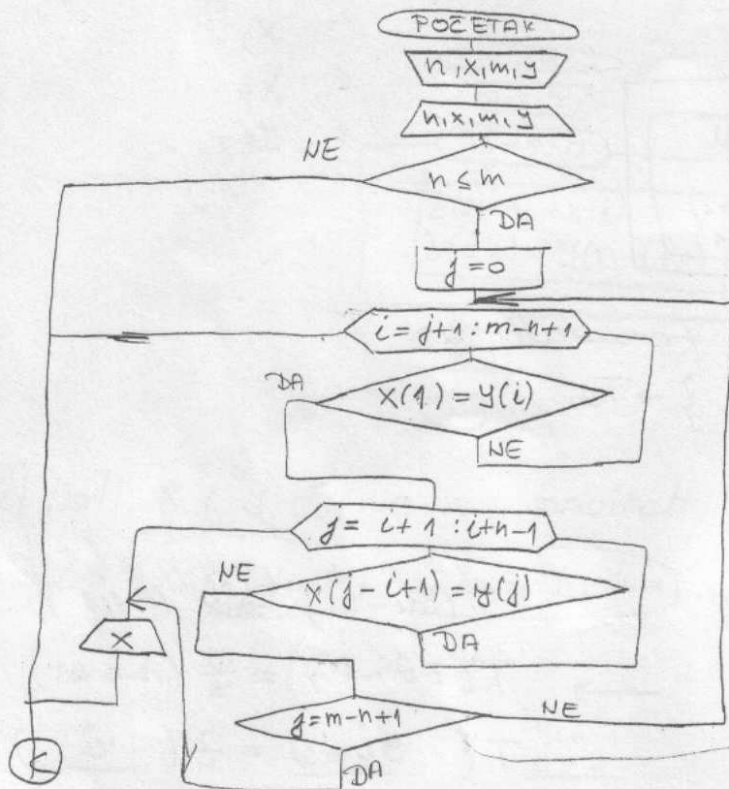 POČETAK
n,x,m,y
n,x,m,y
NE
n ≤ m
DA
j = 0
i = j+1 : m-n+1
DA
x(1) = y(i)
NE
j = i+1 : i+n-1
NE
x(j-i+1) = y(j)
DA
x
j = m-n+1
NE
DA